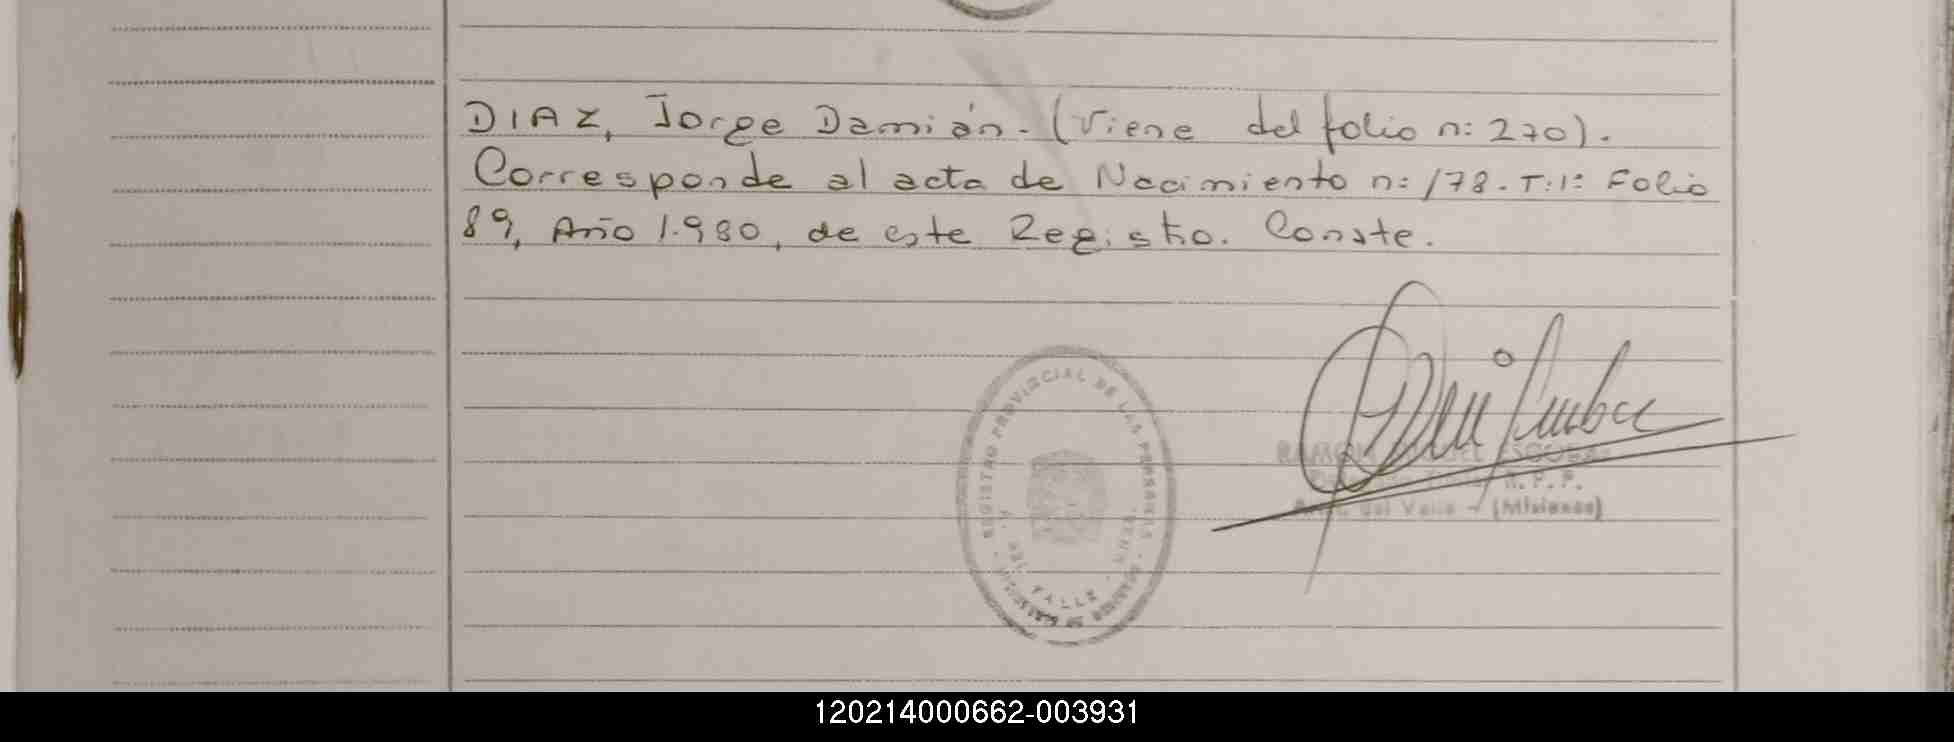 DIAZ, Jorge Damián.- (Viene del folio n: 270).
Corresponde al acta de Nacimiento n: 178. T:1: Folio
89, Año 1.980, de este Registro. Conste.
REGISTRO PROVINCIAL DE LAS PERSONAS
DEL VALLE
R.P.P.
del Valle - (Misiones)
120214000662-003931